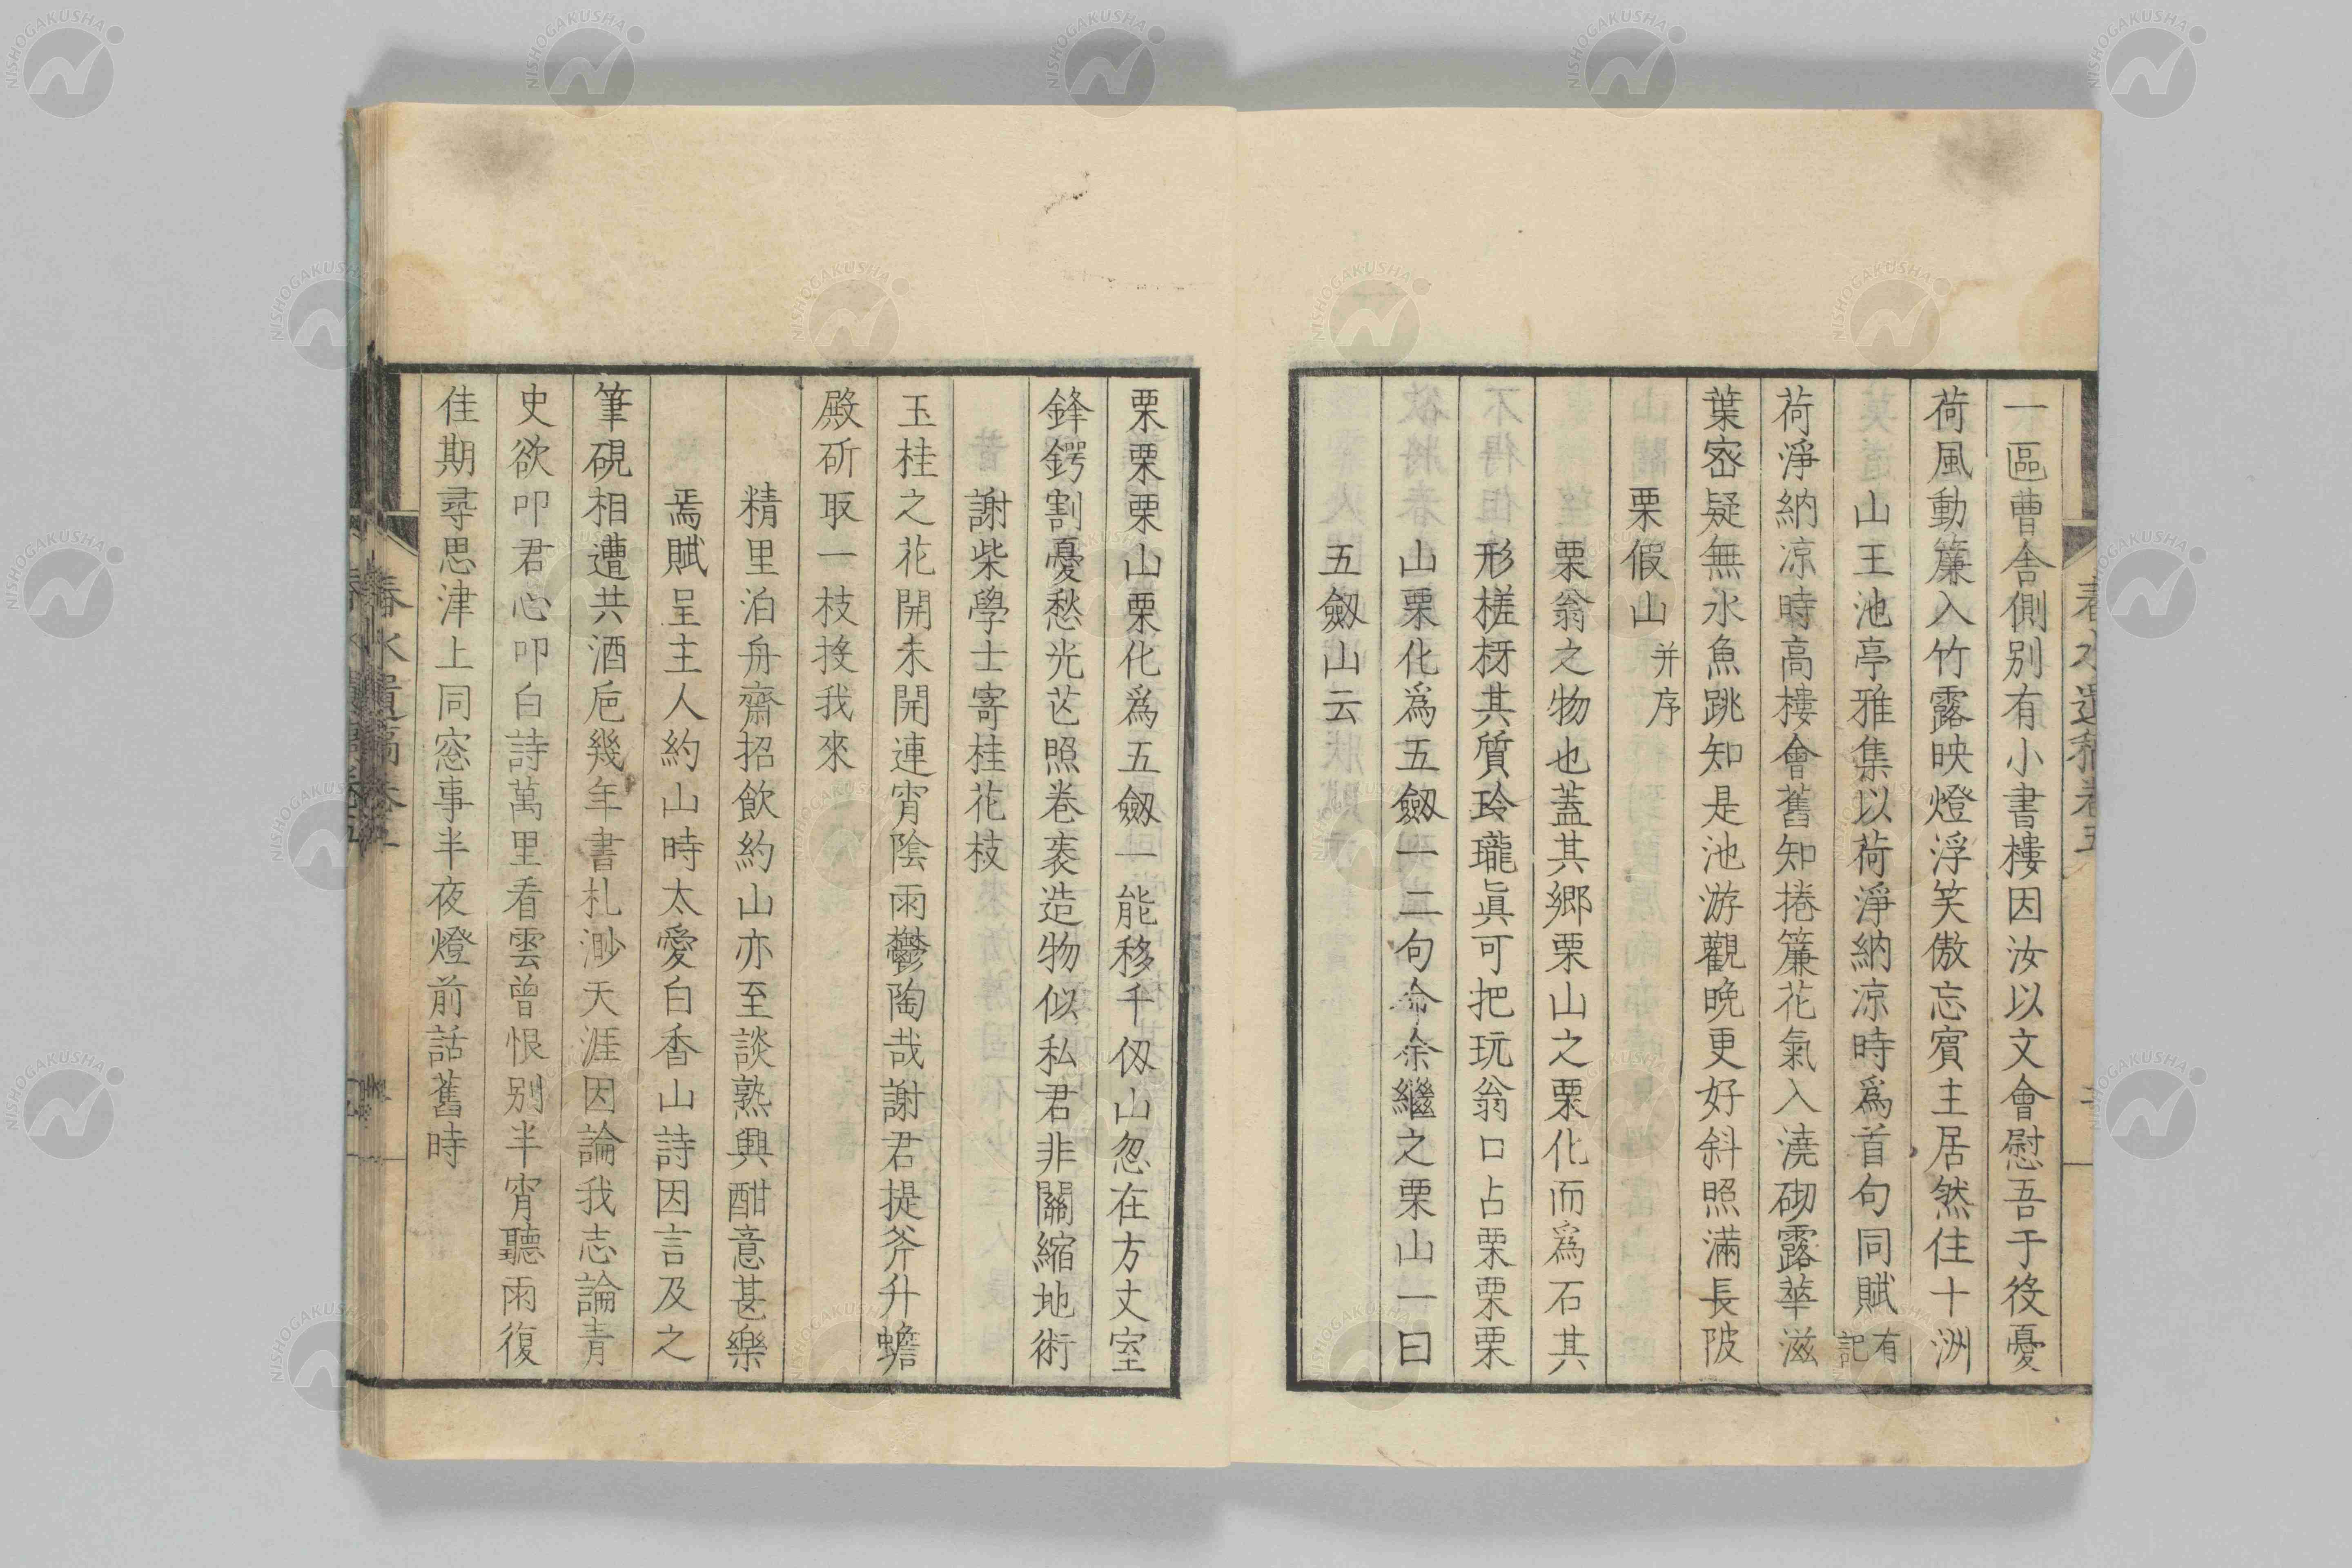 春水遺稿卷五
一區曹舎側別有小書樓因汝以文會慰吾于役憂
荷風動簾入竹露映燈浮笑傲忘賓主居然住十洲
山王池亭雅集以荷淨納凉時爲首句同賦有記
荷淨納凉時高樓會舊知捲簾花氣入澆砌露華滋
葉宻疑無水魚跳知是池游觀晩更好斜照滿長陂
栗假山并序
栗翁之物也蓋其郷栗山之栗化而爲石其
形槎枒其質玲瓏眞可把玩翁口占栗栗栗
山栗化爲五劔一二句令余繼之栗山一曰
五劔山云
栗栗栗山栗化爲五劔一能移千仭山忽在方丈室
鋒鍔割憂愁光芒照卷袠造物似私君非關縮地術
謝柴學士寄桂花枝
玉桂之花開未開連宵陰雨鬱陶哉謝君提斧升蟾
殿斫取一枝投我來
精里泊舟齋招飲約山亦至談熟興酣意甚樂
焉賦呈主人約山時太愛白香山詩因言及之
筆硯相遭共酒巵幾年書札渺天涯因論我志論青
史欲叩君心叩白詩萬里看雲曾恨別半宵聽雨復
佳期尋思津上同窓事半夜燈前話舊時
春水遺稿卷五
NISHOGAKUSHA